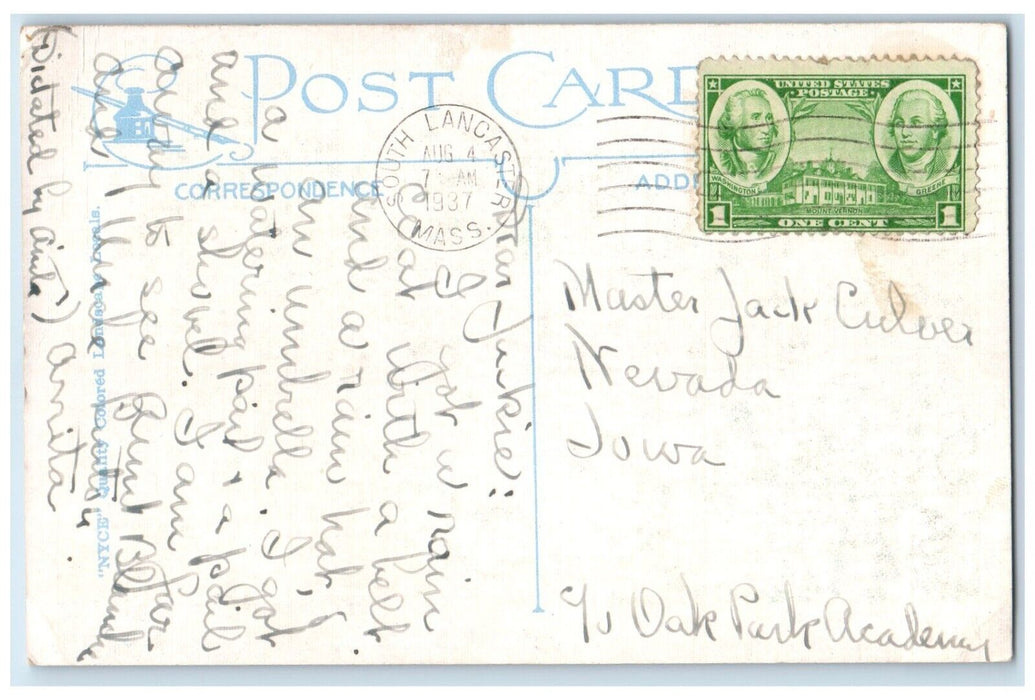 POST CARD
CORRESPONDENCE
SOUTH LANCASTER
AUG 4
7 AM
1937
MASS.
UNITED STATES
POSTAGE
WASHINGTON
GREENE
MOUNT VERNON
1 ONE CENT 1
Dear Jackie:
I got a rain
coat with a belt
and a rain hat,
an umbrella. I got
a watering pail & a pail
and a shovel. I am
to see Aunt Blanche
(Dictated by Anita)
Anita.
"NYCE" Quality Colored Landscape
Master Jack Culver
Nevada
Iowa
c/o Oak Park Academy